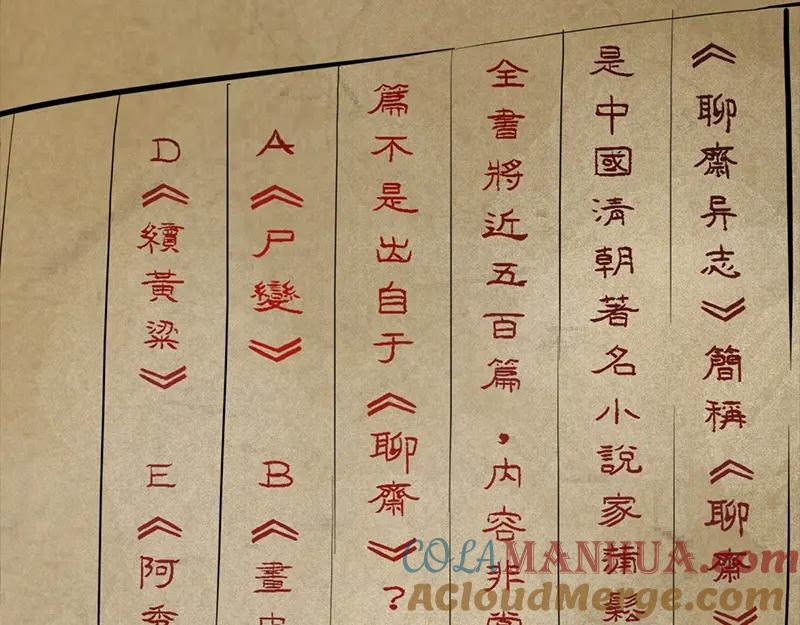 《聊齋异志》簡稱《聊齋》
是中國清朝著名小說家蒲鬆
全書將近五百篇，內容非常
篇不是出自于《聊齋》？
A《尸變》 B《畫
D《續黃粱》 E《阿秀
COLAMANHUA.com
AcloudMerge.com